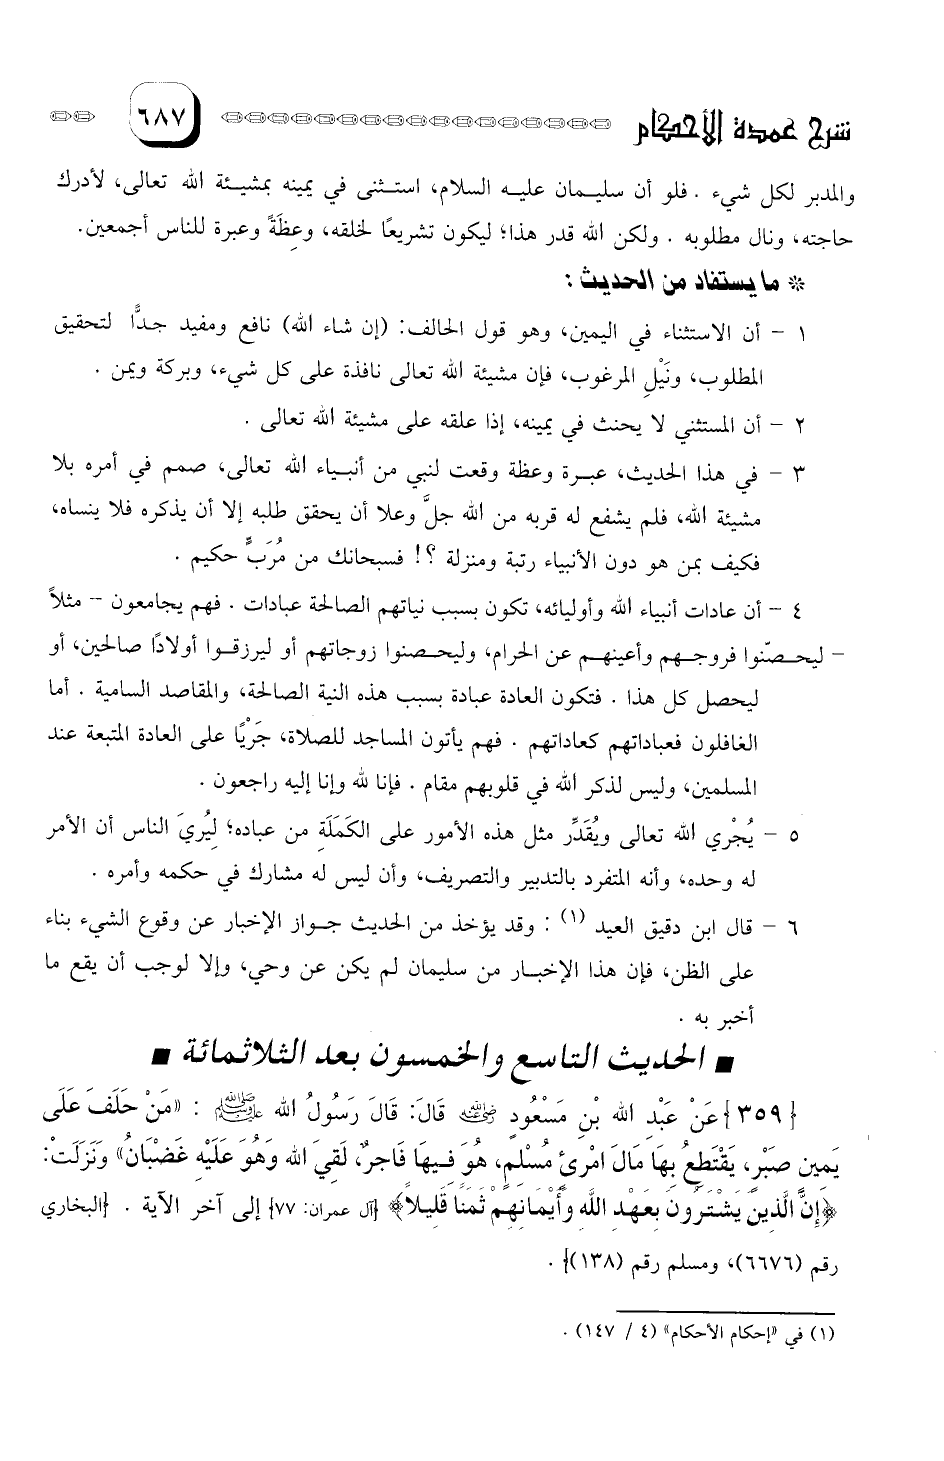 شرح عمدة الأحكام
٦٨٧
والمدبر لكل شيء . فلو أن سليمان عليه السلام، استثنى في يمينه بمشيئة الله تعالى، لأدرك
حاجته، ونال مطلوبه . ولكن الله قدر هذا؛ ليكون تشريعًا لخلقه، وعِظَةً وعبرة للناس أجمعين.
* ما يستفاد من الحديث :
١ - أن الاستثناء في اليمين، وهو قول الحالف: (إن شاء الله) نافع ومفيد جدًّا لتحقيق
المطلوب، ونَيْلِ المرغوب، فإن مشيئة الله تعالى نافذة على كل شيء، وبركة ويمن .
٢ - أن المستثني لا يحنث في يمينه، إذا علقه على مشيئة الله تعالى .
٣ - في هذا الحديث، عبرة وعظة وقعت لنبي من أنبياء الله تعالى، صمم في أمره بلا
مشيئة الله، فلم يشفع له قربه من الله جلَّ وعلا أن يحقق طلبه إلا أن يذكره فلا ينساه،
فكيف بمن هو دون الأنبياء رتبة ومنزلة ؟! فسبحانك من مُرَبٍّ حكيم .
٤ - أن عادات أنبياء الله وأوليائه، تكون بسبب نياتهم الصالحة عبادات . فهم يجامعون - مثلاً
- ليحصّنوا فروجهم وأعينهم عن الحرام، وليحصنوا زوجاتهم أو ليرزقوا أولادًا صالحين، أو
ليحصل كل هذا . فتكون العادة عبادة بسبب هذه النية الصالحة، والمقاصد السامية . أما
الغافلون فعباداتهم كعاداتهم . فهم يأتون المساجد للصلاة، جَرْيًا على العادة المتبعة عند
المسلمين، وليس لذكر الله في قلوبهم مقام . فإنا لله وإنا إليه راجعون .
٥ - يُجْري الله تعالى ويُقَدِّر مثل هذه الأمور على الكَمَلَةِ من عباده؛ ليُريَ الناس أن الأمر
له وحده، وأنه المتفرد بالتدبير والتصريف، وأن ليس له مشارك في حكمه وأمره .
٦ - قال ابن دقيق العيد (١) : وقد يؤخذ من الحديث جواز الإخبار عن وقوع الشيء بناء
على الظن، فإن هذا الإخبار من سليمان لم يكن عن وحي، وإلا لوجب أن يقع ما
أخبر به .
■ الحديث التاسع والخمسون بعد الثلاثمائة ■
{٣٥٩} عَنْ عَبْدِ الله بْنِ مَسْعُودٍ رضي الله عنه قَالَ: قَالَ رَسُولُ الله ﷺ : «مَنْ حَلَفَ عَلَى
يَمِينِ صَبْرٍ، يَقْتَطِعُ بِهَا مَالَ امْرِئٍ مُسْلِمٍ، هُوَ فِيهَا فَاجِرٌ، لَقِيَ الله وَهُوَ عَلَيْهِ غَضْبَانُ» وَنَزَلَتْ:
﴿إِنَّ الَّذِينَ يَشْتَرُونَ بِعَهْدِ اللَّهِ وَأَيْمَانِهِمْ ثَمَنًا قَلِيلاً﴾ {آل عمران: ٧٧} إلى آخر الآية . {البخاري
رقم (٦٦٧٦)، ومسلم رقم (١٣٨)} .
(١) في «إحكام الأحكام» (٤ / ١٤٧) .